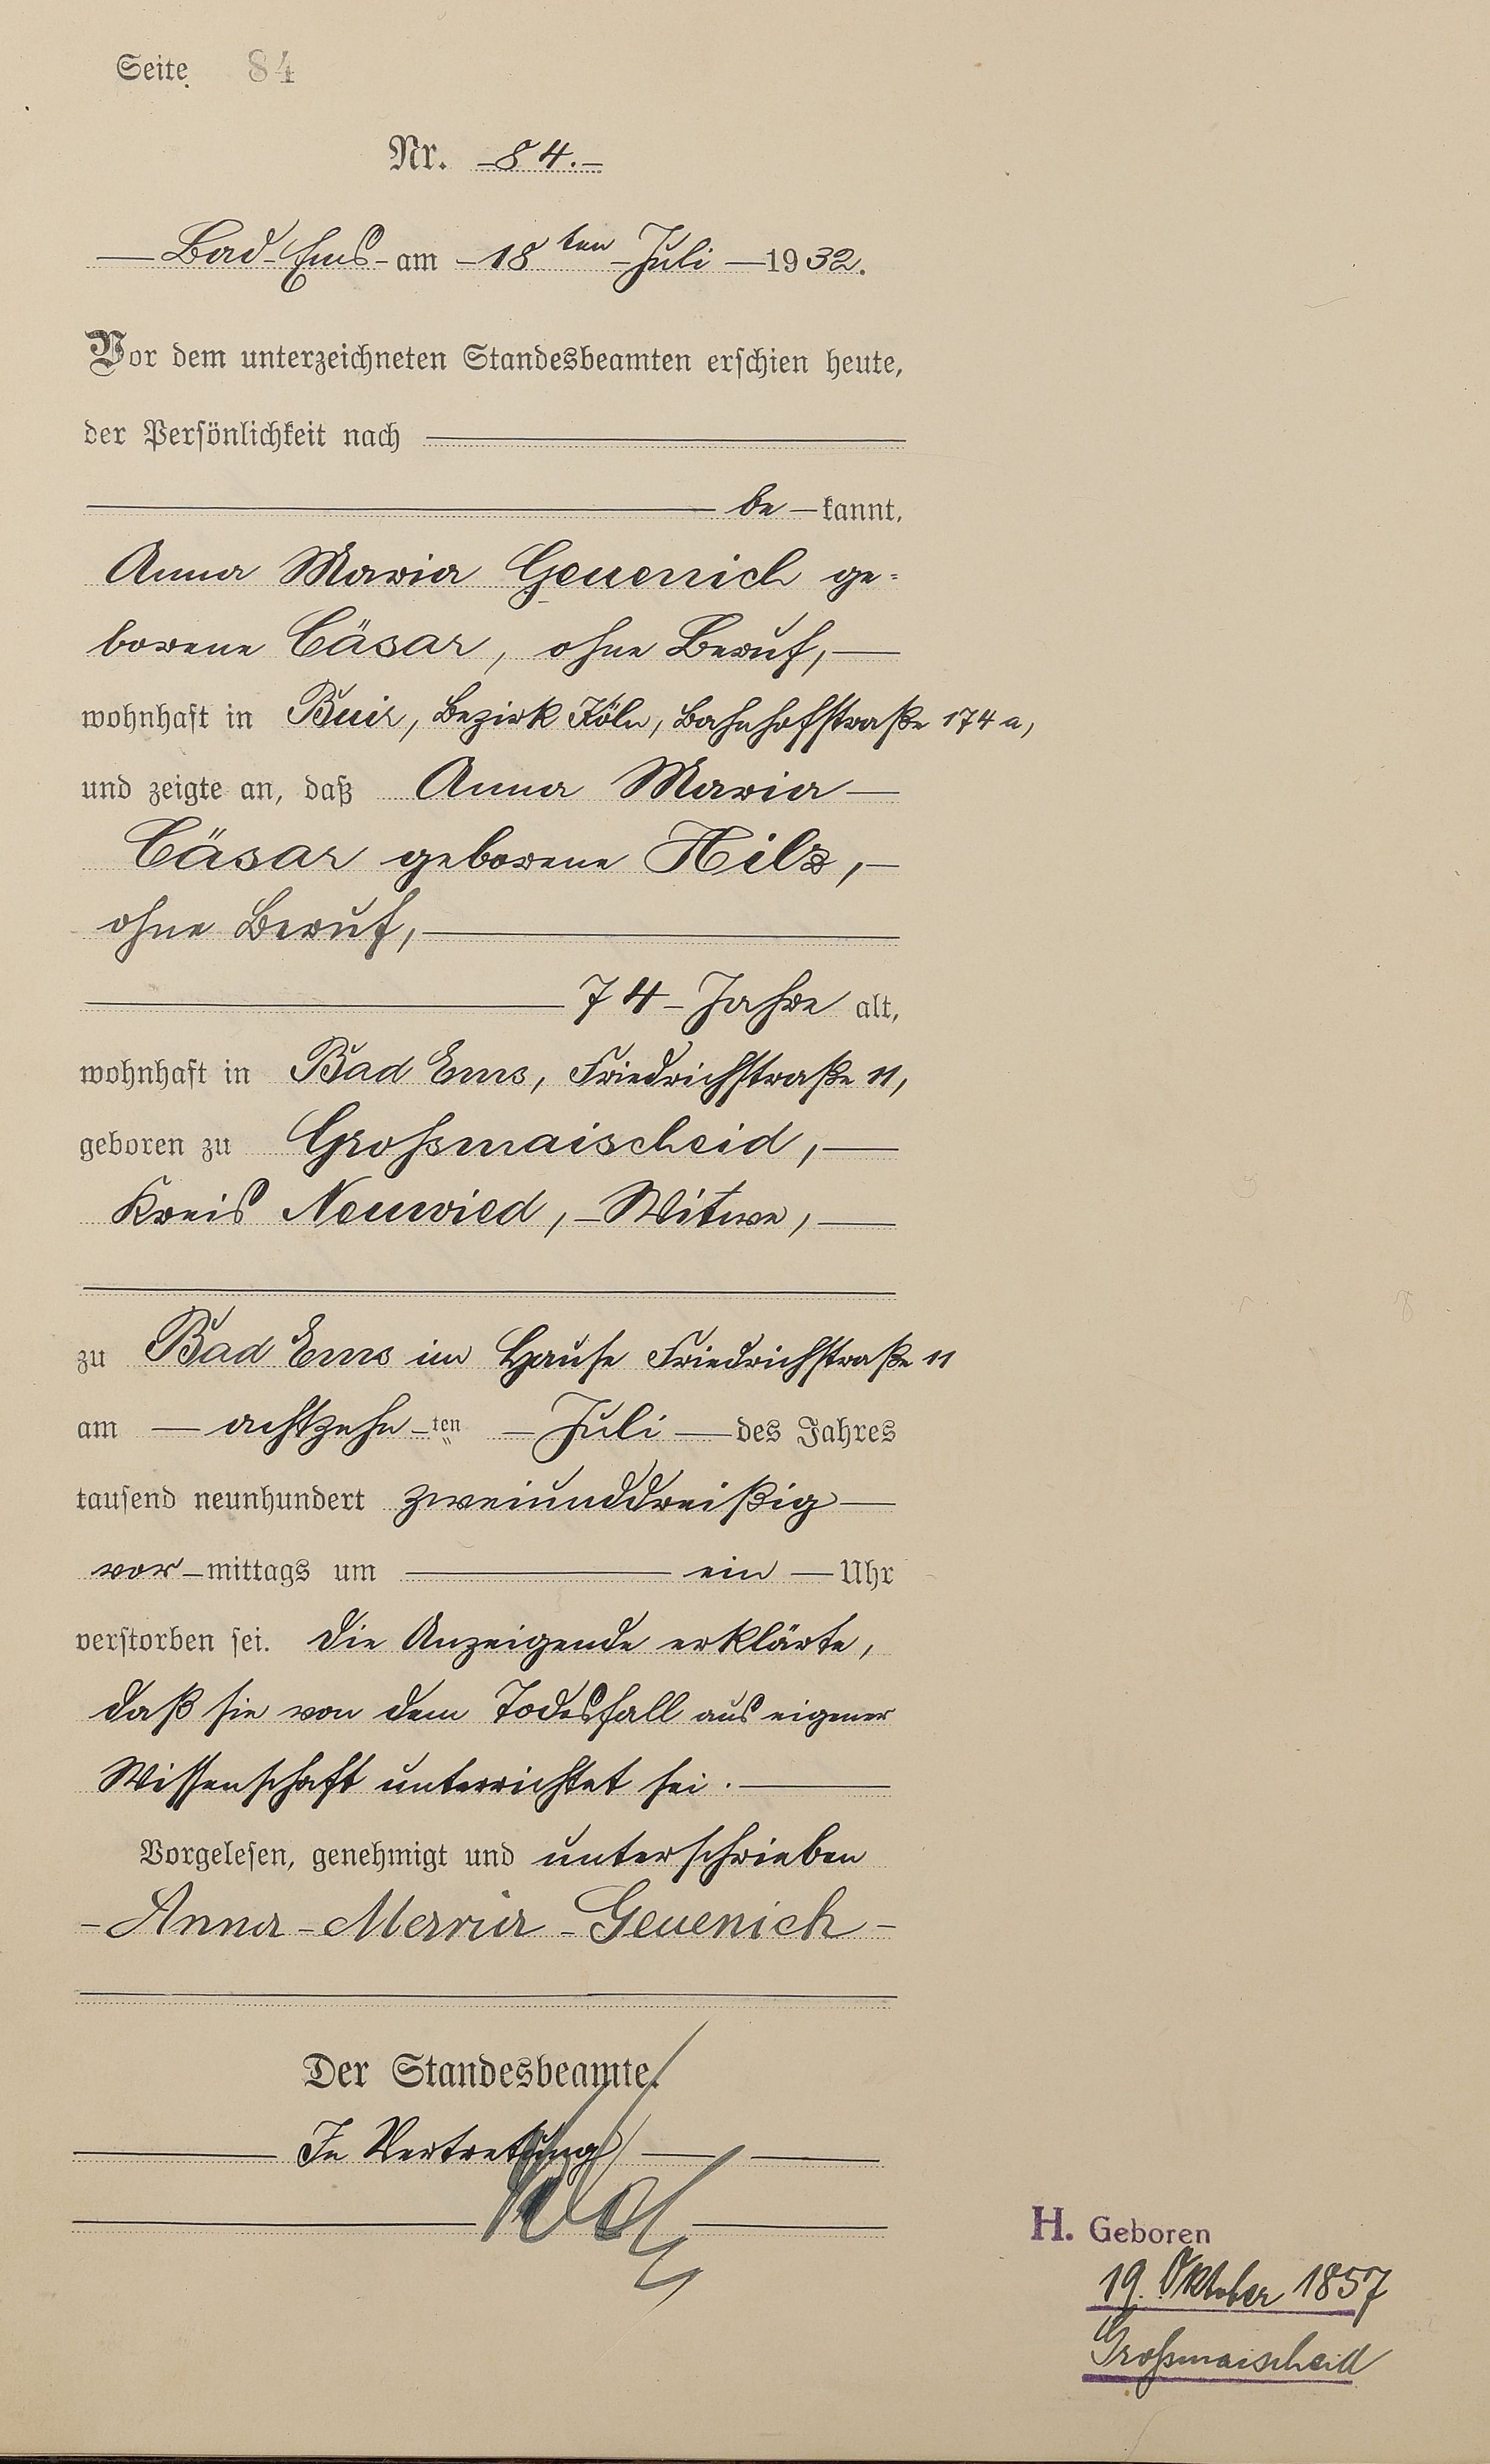 Seite 84
Nr. 84.
Bad Ems am 18ten Juli 1932.
Vor dem unterzeichneten Standesbeamten erschien heute,
der Persönlichkeit nach
be-kannt,
Anna Maria Geuenich ge-
borene Cäsar, ohne Beruf,
wohnhaft in Buir, Bezirk Köln, Bahnhofstraße 174 a,
und zeigte an, daß Anna Maria
Cäsar geborene Hilz,
ohne Beruf,
74 Jahre alt,
wohnhaft in Bad Ems, Friedrichstraße 11,
geboren zu Großmaischeid,
Kreis Neuwied, Witwe,
zu Bad Ems im Hause Friedrichstraße 11
am achtzehn-ten Juli des Jahres
tausend neunhundert zweiunddreißig
vor-mittags um ein Uhr
verstorben sei. Die Anzeigende erklärte,
daß sie von dem Todesfall aus eigener
Wissenschaft unterrichtet sei.
Vorgelesen, genehmigt und unterschrieben
Anna Maria Geuenich
Der Standesbeamte.
In Vertretung
H. Geboren
19. Oktober 1857
Großmaischeid